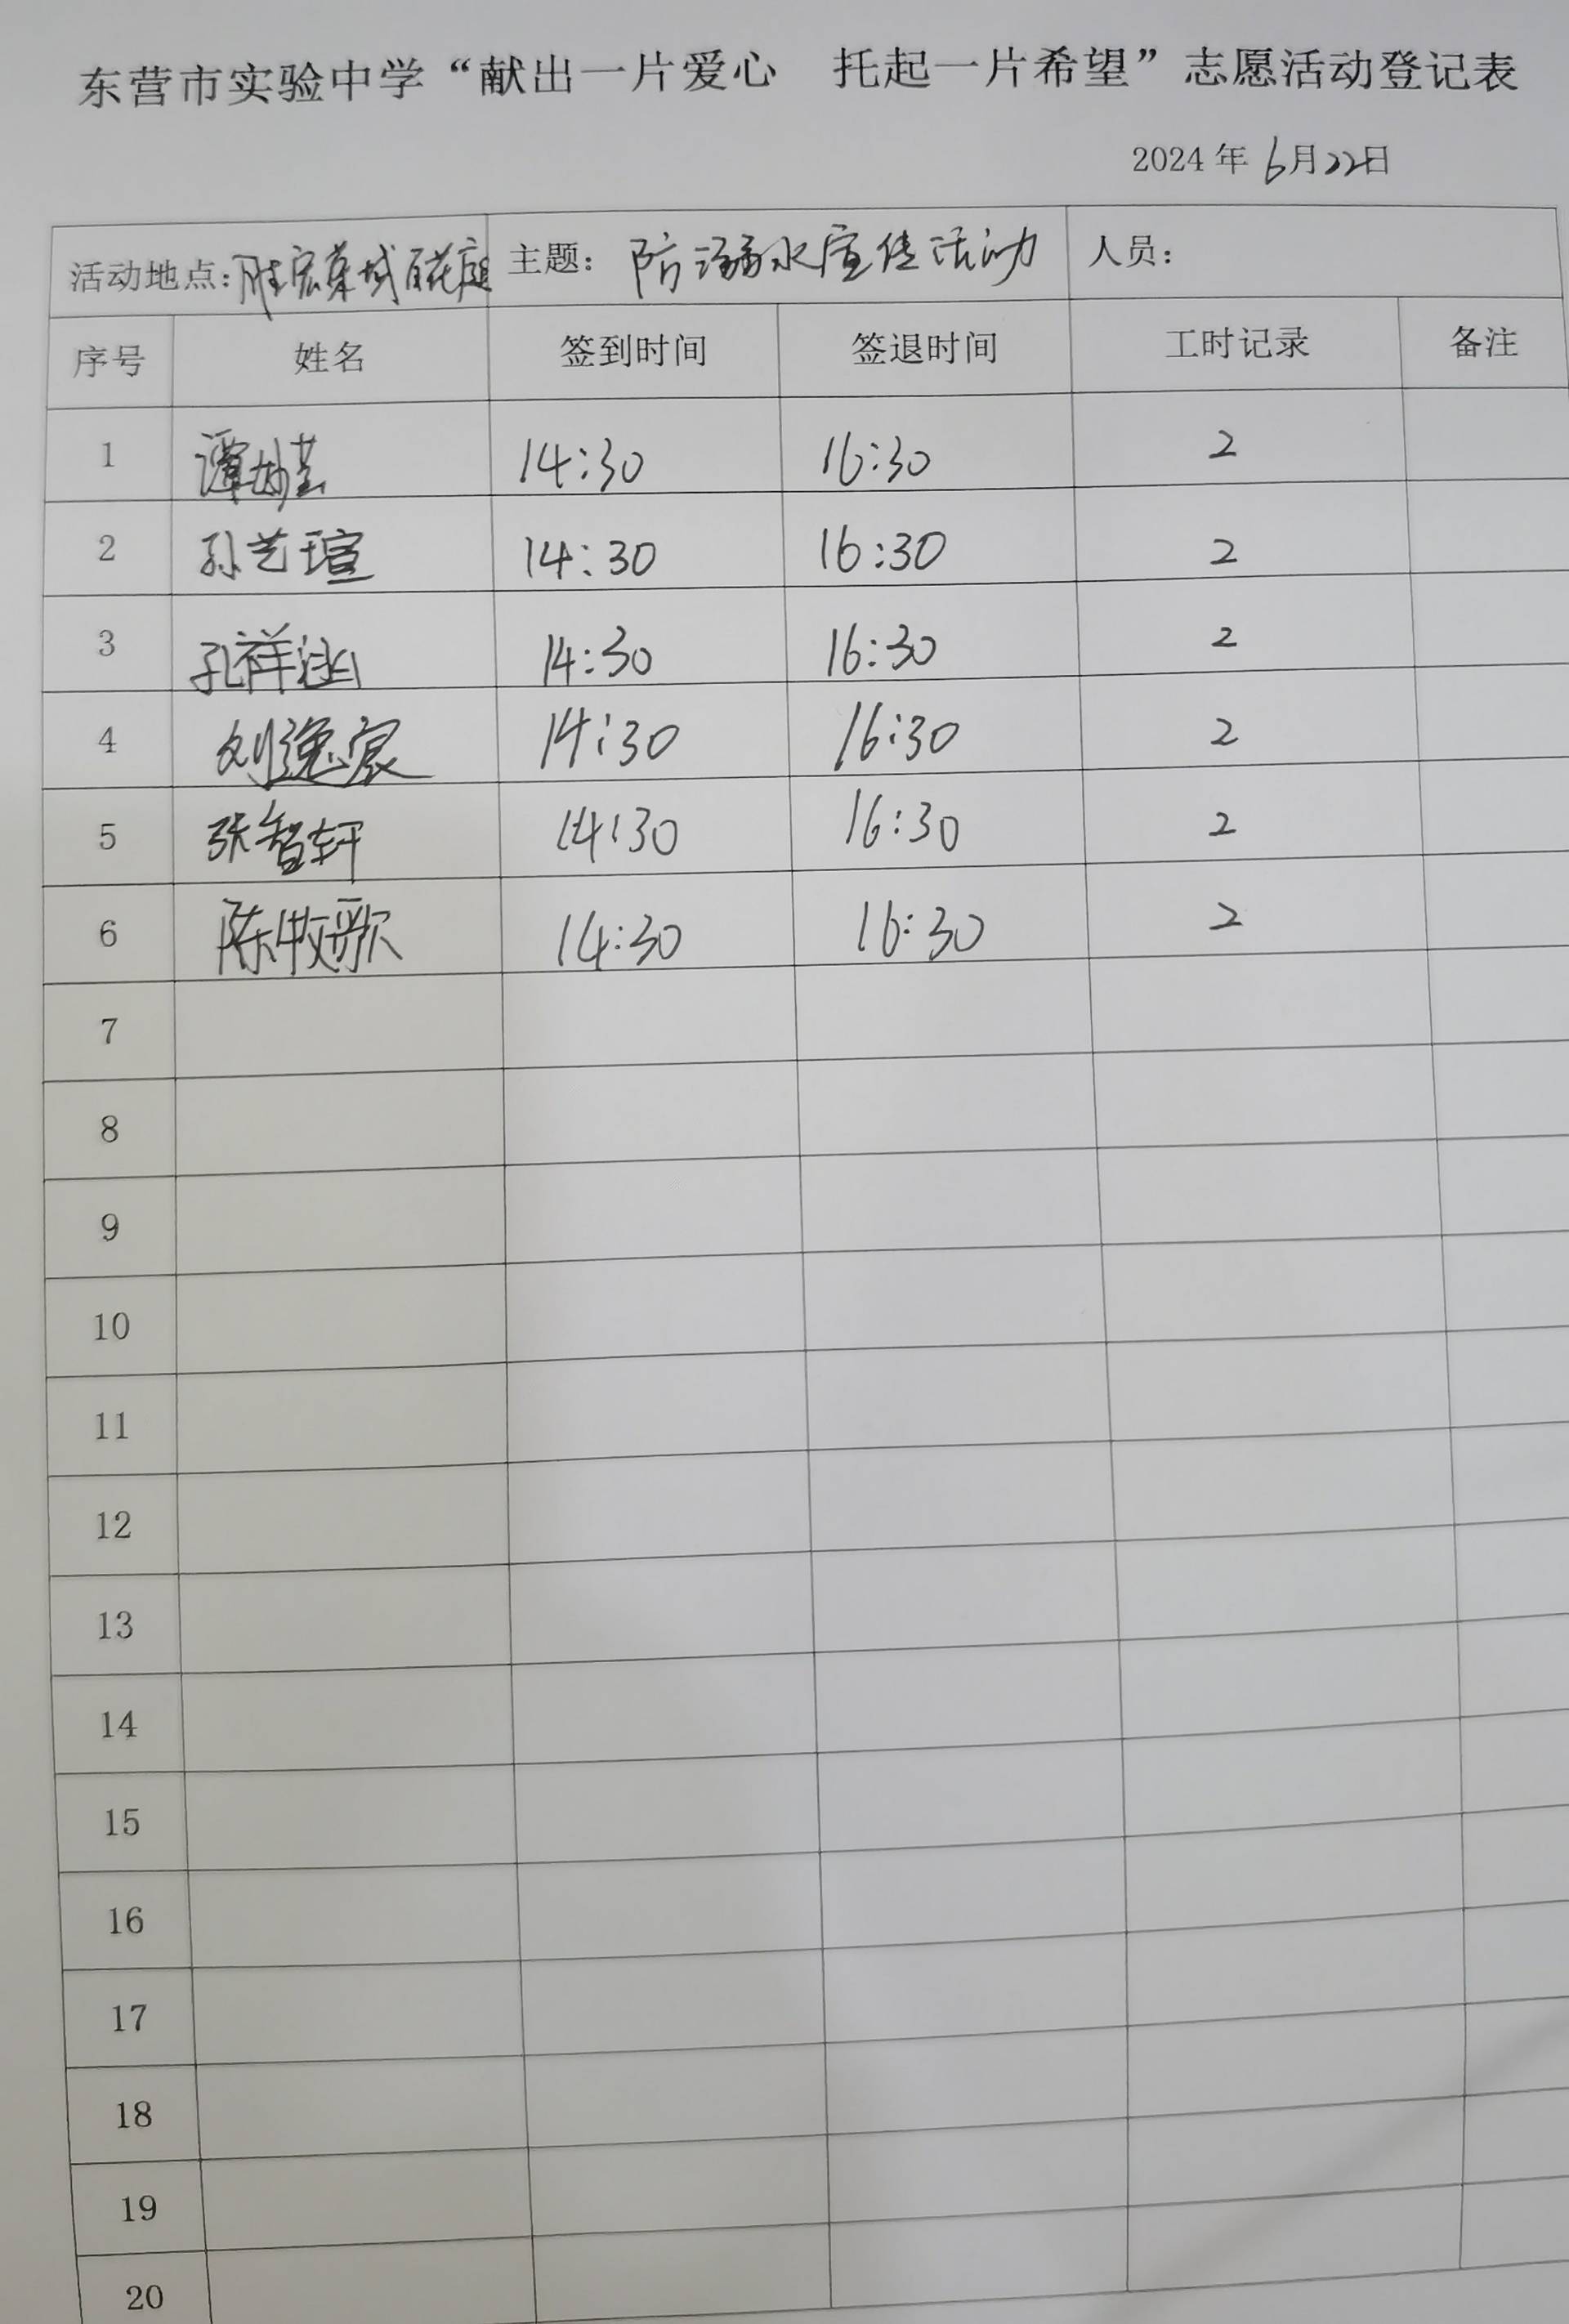 东营市实验中学“献出一片爱心 托起一片希望”志愿活动登记表
2024年6月22日
活动地点:胜宏荣域百花庭 主题: 防溺水宣传活动 人员:
序号 姓名 签到时间 签退时间 工时记录 备注
1 谭 14:30 16:30 2
2 孙艺瑄 14:30 16:30 2
3 孔祥涵 14:30 16:30 2
4 刘逸宸 14:30 16:30 2
5 张智轩 14:30 16:30 2
6 陈牧歌 14:30 16:30 2
7
8
9
10
11
12
13
14
15
16
17
18
19
20